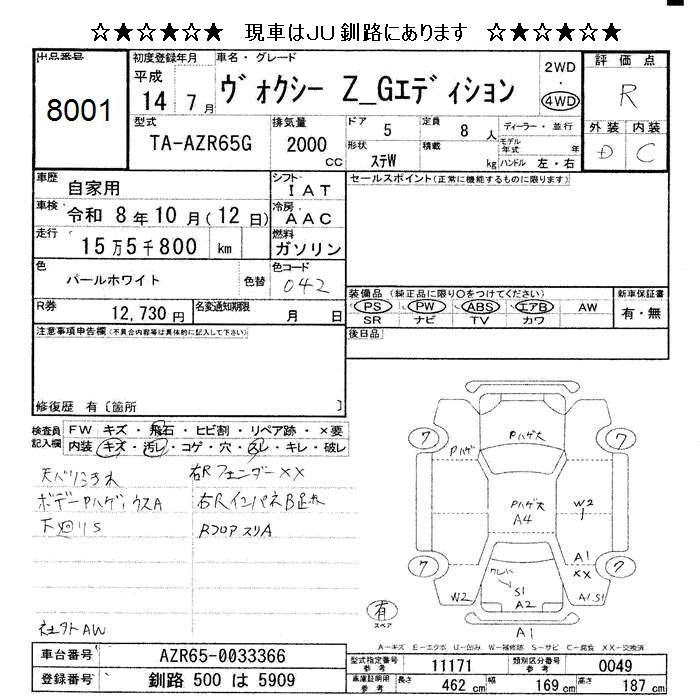 ☆★☆★☆★ 現車はJU釧路にあります ☆★☆★☆★
出品番号
8001
初度登録年月
平成
14 7月
車名・グレード
ヴォクシー Z_Gエディション
2WD
・
4WD
評価点
R
外装 内装
D C
型式
TA-AZR65G
排気量
2000
cc
ドア 5
定員 8 人
形状 ステW
積載 kg
ディーラー・並行
モデル年式 年
ハンドル 左・右
車歴 自家用
シフト IAT
車検 令和 8年10月(12日)
冷房 AAC
走行 15万5千800 km
燃料 ガソリン
色 パールホワイト 色替
色コード 042
R券 12,730円
名変通知期限 月 日
セールスポイント(正常に機能するものに限ります)
装備品(純正品に限り○をつけてください)
PS PW ABS エアB AW
SR ナビ TV カワ
新車保証書
有・無
後日品
注意事項申告欄(不具合内容等は具体的に記入して下さい)
修復歴 有〔箇所 〕
検査員記入欄
FW キズ・飛石・ヒビ割・リペア跡・×要
内装 キズ・汚レ・コゲ・穴・スレ・キレ・破レ
天バリヨゴれ
右Rフェンダー××
ボデーPハゲ、ウスA
右RインパネB足ホ
下廻りS
RフロアスリA
社外AW
7
7
7
7
Pハゲ
Pハゲ大
Pハゲ大
A4
W2
A1
××
S1
A2
W2
A1.S1
A1
有
スペア
A-キズ E-エクボ U-凹み W-補修跡 S-サビ C-腐食 XX-交換済
車台番号 AZR65-0033366
登録番号 釧路 500 は 5909
型式指定番号 参考 11171
類別区分番号 参考 0049
車庫証明用 参考
長さ 462 cm
幅 169 cm
高さ 187 cm